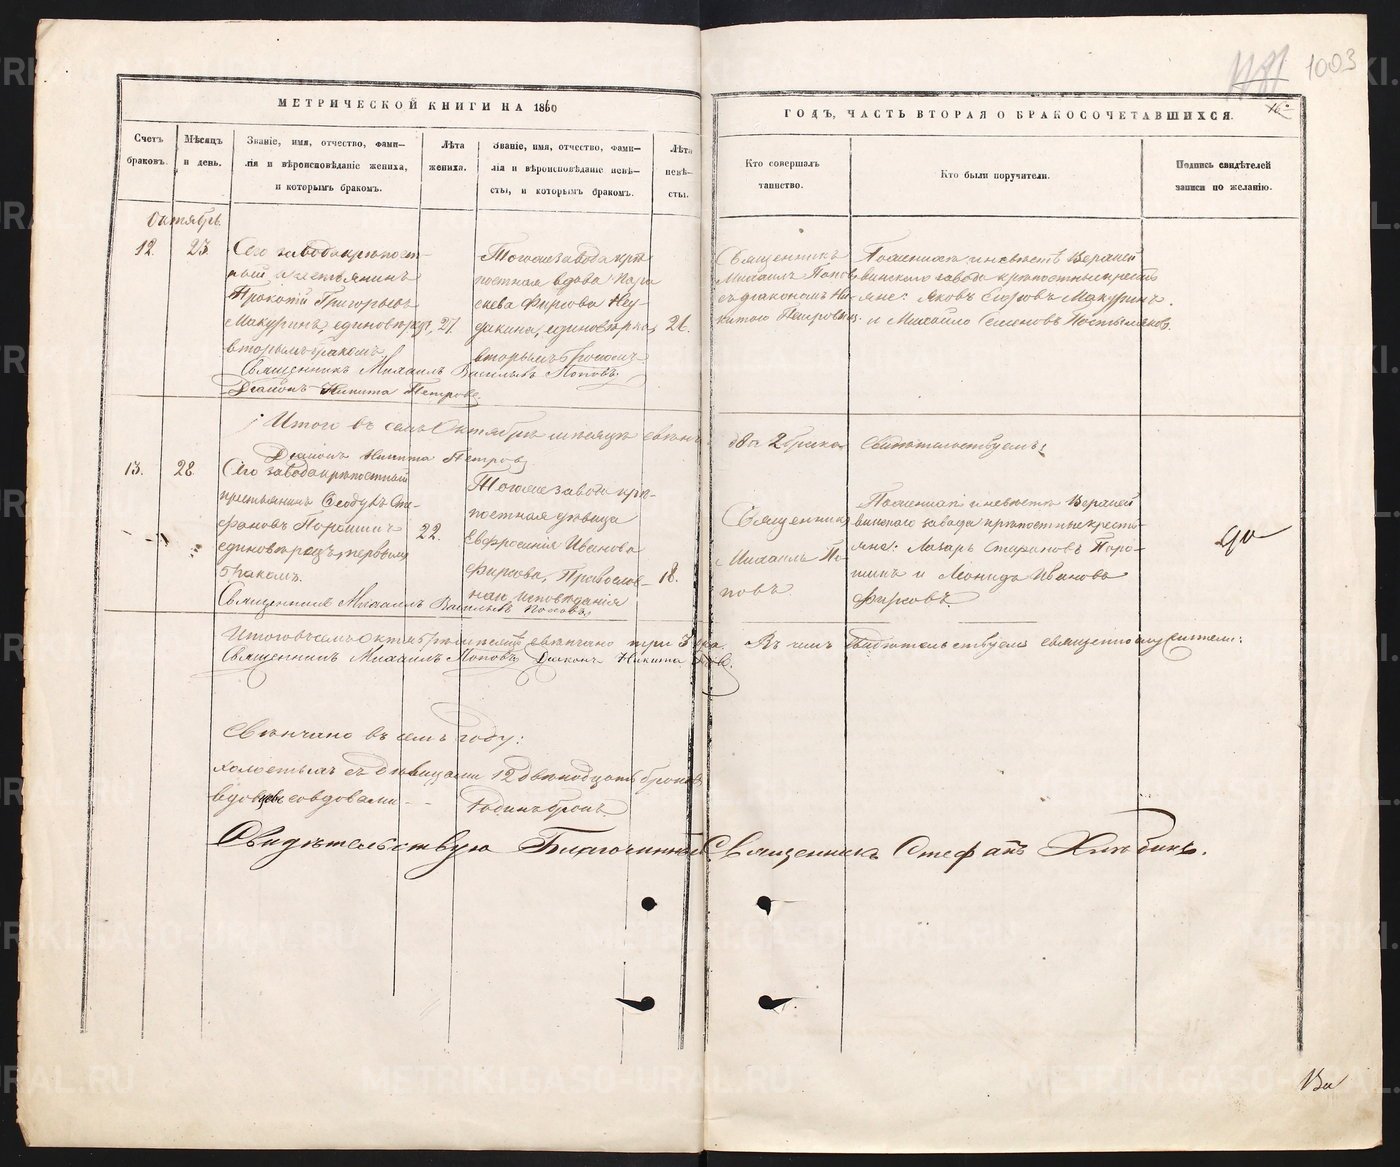 1003
МЕТРИЧЕСКОЙ КНИГИ НА 1860
ГОДЪ, ЧАСТЬ ВТОРАЯ О БРАКОСОЧЕТАВШИХСЯ.
Счетъ браковъ.
Мѣсяцъ и день.
Званіе, имя, отчество, фами-
лія и вѣроисповѣданіе жениха,
и которымъ бракомъ.
Лѣта
жениха.
Званіе, имя, отчество, фами-
лія и вѣроисповѣданіе невѣ-
сты, и которымъ бракомъ.
Лѣта
невѣ-
сты.
Кто совершалъ
таинство.
Кто были поручители.
Подпись свидѣтелей
записи по желанію.
Октябрь
12.
23.
Сего завода крѣпост-
ный крестьянинъ
Прокопій Григорьевъ
Макуринъ, единовѣрецъ,
вторымъ бракомъ.
27.
Тогоже завода крѣ-
постная вдова Пара
скева Фирсова Неу-
дакина, единовѣрка,
вторымъ бракомъ.
21.
Священникъ
Михаилъ Поповъ
съ діакономъ Ни-
китою Петровымъ.
По женихѣ и невѣстѣ Верхней
винскаго завода крѣпостные крестья
яне: Яковъ Егоровъ Макуринъ.
и Михайло Семеновъ
Священникъ Михаилъ Васильевъ Поповъ.
Діаконъ Никита Петровъ
Итого въ семъ Октябрѣ мѣсяцѣ
два 2 брака
Свидѣтельствуемъ:
Діаконъ Никита Петровъ
13.
28.
Сего завода крѣпостный
крестьянинъ Ѳеодулъ Сте
фановъ Порошинъ
единовѣрецъ, первымъ
бракомъ.
22.
Тогоже завода крѣ-
постная дѣвица
Евфросинія Иванова
Фирсова, Православ-
наго исповѣданія
18.
Священникъ
Михаилъ По
повъ
По женихѣ и невѣстѣ Верхней
винскаго завода крѣпостные кресть-
яне: Лазарь Стефановъ Поро-
шинъ и Леонидъ Ивановъ
Фирсовъ.
Священникъ Михаилъ Васильевъ Поповъ.
Итого въ семъ Октябрѣ мѣсяцѣ свѣнчано три 3 бра.
Въ чемъ свидѣтельствуемъ священнослужители:
Священникъ Михаилъ Поповъ Діаконъ Никита
Свѣнчано въ семъ году:
холостыхъ съ дѣвицами 12 двѣнадцать браковъ
вдовцевъ со вдовами - - 1 одинъ бракъ.
Свидѣтельствую Благочинный Священникъ Стефанъ Хлѣбинъ.
METRIKI.GASO-URAL.RU